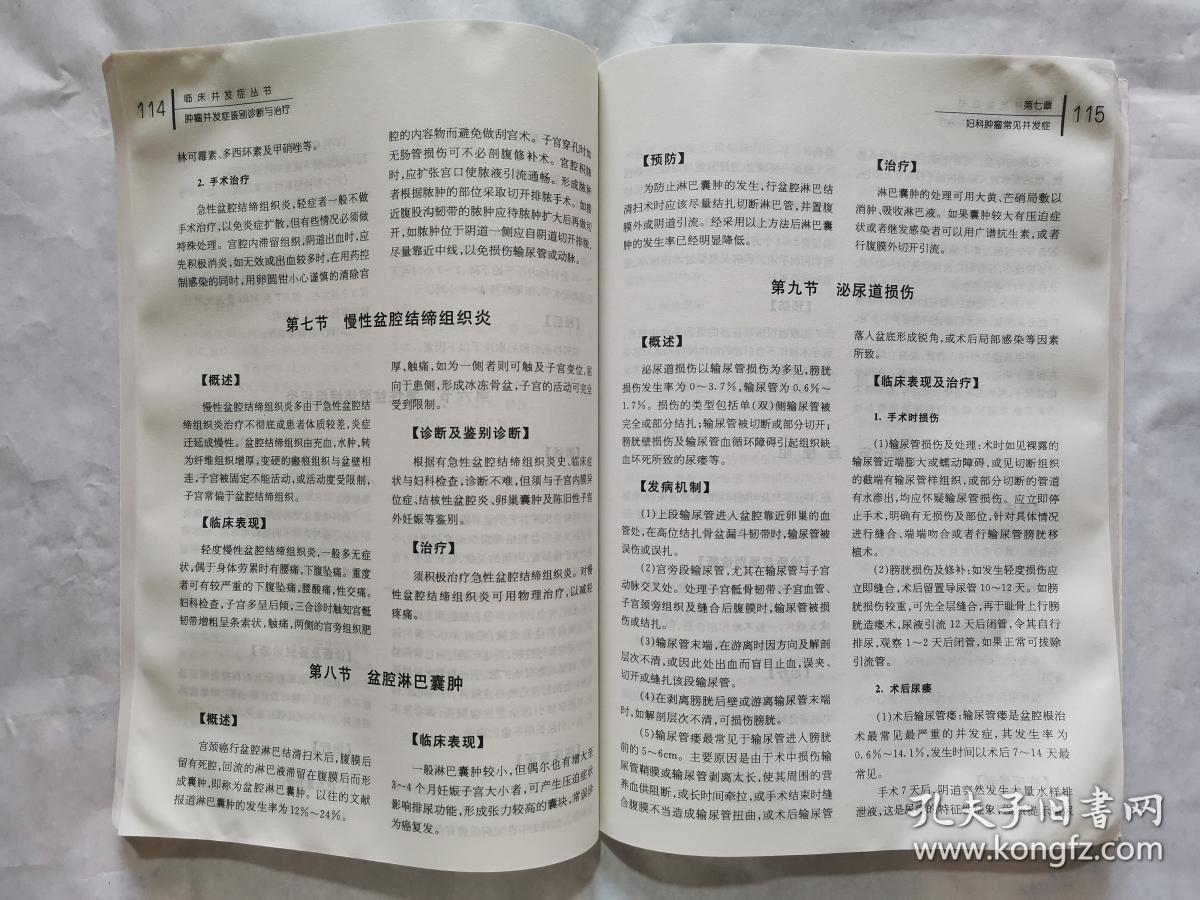 114
临床并发症丛书
肿瘤并发症鉴别诊断与治疗
林可霉素、多西环素及甲硝唑等。
2. 手术治疗
急性盆腔结缔组织炎,轻症者一般不做
手术治疗,以免炎症扩散,但有些情况必须做
特殊处理。宫腔内滞留组织,阴道出血时,应
先积极消炎,如无效或出血较多时,在用药控
制感染的同时,用卵圆钳小心谨慎的清除宫
腔的内容物而避免做刮宫术。子宫穿孔时如
无肠管损伤可不必剖腹修补术。宫腔积脓
时,应扩张宫口使脓液引流通畅。形成脓肿
者根据脓肿的部位采取切开排脓手术。如接
近腹股沟韧带的脓肿应待脓肿扩大后再做切
开,如脓肿位于阴道一侧应自阴道切开排脓,
尽量靠近中线,以免损伤输尿管或动脉。
第七节 慢性盆腔结缔组织炎
【概述】
慢性盆腔结缔组织炎多由于急性盆腔结
缔组织炎治疗不彻底或患者体质较差,炎症
迁延成慢性。盆腔结缔组织由充血,水肿,转
为纤维组织增厚,变硬的瘢痕组织与盆壁相
连,子宫被固定不能活动,或活动度受限制,
子宫常偏于盆腔结缔组织。
【临床表现】
轻度慢性盆腔结缔组织炎,一般多无症
状,偶于身体劳累时有腰痛、下腹坠痛。重度
者可有较严重的下腹坠痛,腰酸痛,性交痛。
妇科检查,子宫多呈后倾,三合诊时触知宫骶
韧带增粗呈条索状,触痛,两侧的宫旁组织肥
厚,触痛,如为一侧者则可触及子宫变位,屈
向于患侧,形成冰冻骨盆,子宫的活动可完全
受到限制。
【诊断及鉴别诊断】
根据有急性盆腔结缔组织炎史、临床症
状与妇科检查,诊断不难,但须与子宫内膜异
位症、结核性盆腔炎、卵巢囊肿及陈旧性子宫
外妊娠等鉴别。
【治疗】
须积极治疗急性盆腔结缔组织炎。对慢
性盆腔结缔组织炎可用物理治疗,以减轻
疼痛。
第八节 盆腔淋巴囊肿
【概述】
宫颈癌行盆腔淋巴结清扫术后,腹膜后
留有死腔,回流的淋巴液滞留在腹膜后而形
成囊肿,即称为盆腔淋巴囊肿。以往的文献
报道淋巴囊肿的发生率为12%~24%。
【临床表现】
一般淋巴囊肿较小,但偶尔也有增大至
3~4个月妊娠子宫大小者,可产生压迫症状
影响排尿功能,形成张力较高的囊块,常误诊
为癌复发。
第七章
妇科肿瘤常见并发症
115
【预防】
为防止淋巴囊肿的发生,行盆腔淋巴结
清扫术时应该尽量结扎切断淋巴管,并置腹
膜外或阴道引流。经采用以上方法后淋巴囊
肿的发生率已经明显降低。
【治疗】
淋巴囊肿的处理可用大黄、芒硝局敷以
消肿、吸收淋巴液。如果囊肿较大有压迫症
状或者继发感染者可以用广谱抗生素,或者
行腹膜外切开引流。
第九节 泌尿道损伤
【概述】
泌尿道损伤以输尿管损伤为多见,膀胱
损伤发生率为0~3.7%,输尿管为0.6%~
1.7%。损伤的类型包括单(双)侧输尿管被
完全或部分结扎;输尿管被切断或部分切开;
膀胱壁损伤及输尿管血循环障碍引起组织缺
血坏死所致的尿瘘等。
【发病机制】
(1)上段输尿管进入盆腔靠近卵巢的血
管处,在高位结扎骨盆漏斗韧带时,输尿管被
误伤或误扎。
(2)宫旁段输尿管,尤其在输尿管与子宫
动脉交叉处。处理子宫骶骨韧带、子宫血管、
子宫颈旁组织及缝合后腹膜时,输尿管被损
伤或结扎。
(3)输尿管末端,在游离时因方向及解剖
层次不清,或因此处出血而盲目止血,误夹、
切开或缝扎该段输尿管。
(4)在剥离膀胱后壁或游离输尿管末端
时,如解剖层次不清,可损伤膀胱。
(5)输尿管瘘最常见于输尿管进入膀胱
前的5~6cm。主要原因是由于术中损伤输
尿管鞘膜或输尿管剥离太长,使其周围的营
养血供阻断,或长时间牵拉,或手术结束时缝
合腹膜不当造成输尿管扭曲,或术后输尿管
落入盆底形成锐角,或术后局部感染等因素
所致。
【临床表现及治疗】
1. 手术时损伤
(1)输尿管损伤及处理:术时如见裸露的
输尿管近端膨大或蠕动障碍,或见切断组织
的截端有输尿管样组织,或部分切断的管道
有水渗出,均应怀疑输尿管损伤。应立即停
止手术,明确有无损伤及部位,针对具体情况
进行缝合、端端吻合或者行输尿管膀胱移
植术。
(2)膀胱损伤及修补:如发生轻度损伤应
立即缝合,术后留置导尿管10~12天。如膀
胱损伤较重,可先全层缝合,再于耻骨上行膀
胱造瘘术,尿液引流12天后闭管,令其自行
排尿,观察1~2天后闭管,如果正常可拔除
引流管。
2. 术后尿瘘
(1)术后输尿管瘘:输尿管瘘是盆腔根治
术最常见最严重的并发症,其发生率为
0.6%~14.1%,发生时间以术后7~14天最
常见。
手术7天后,阴道突然发生大量水样排
泄液,这是尿瘘的特征性现象,
孔夫子旧书网
www.kongfz.com